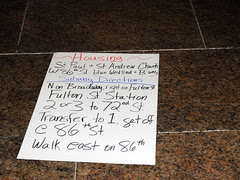 Housing
St Paul + St Andrew Church
W 86th St btwn West End + B'way
Subway Directions
N on Broadway, 1 spt on Fulton St
Fulton St Station
2 or 3 to 72nd St
Transfer to 1, get off
@ 86th St
Walk east on 86th